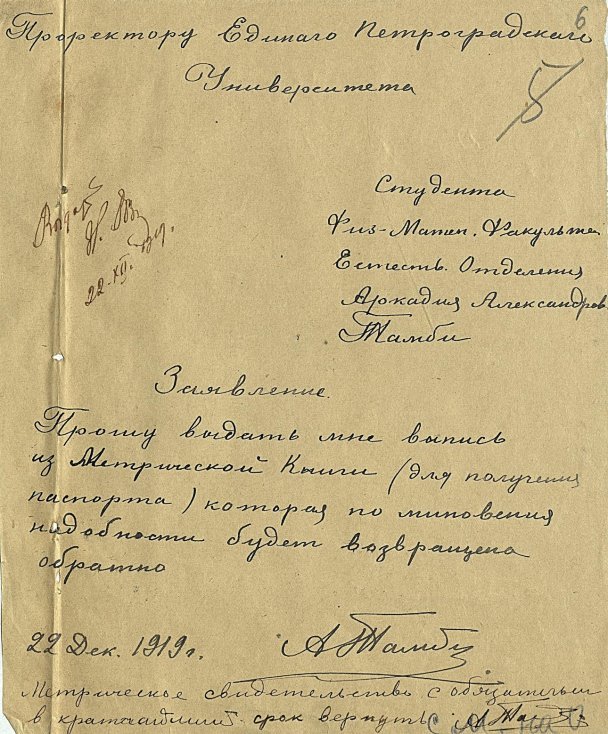 6
Проректору Единаго Петроградскаго
Университета
Студента
Физ-Матем. Факульте.
Естеств. Отделения
Аркадия Александров.
Тамби
22-XII-1919.
Заявление.
Прошу выдать мне выпись
из Метрической Книги (для получения
паспорта) которая по миновения
надобности будет возвращена
обратно
22 Дек. 1919 г.
А Тамби
Метрическое свидетельство с обязательст
в кратчайший срок вернуть